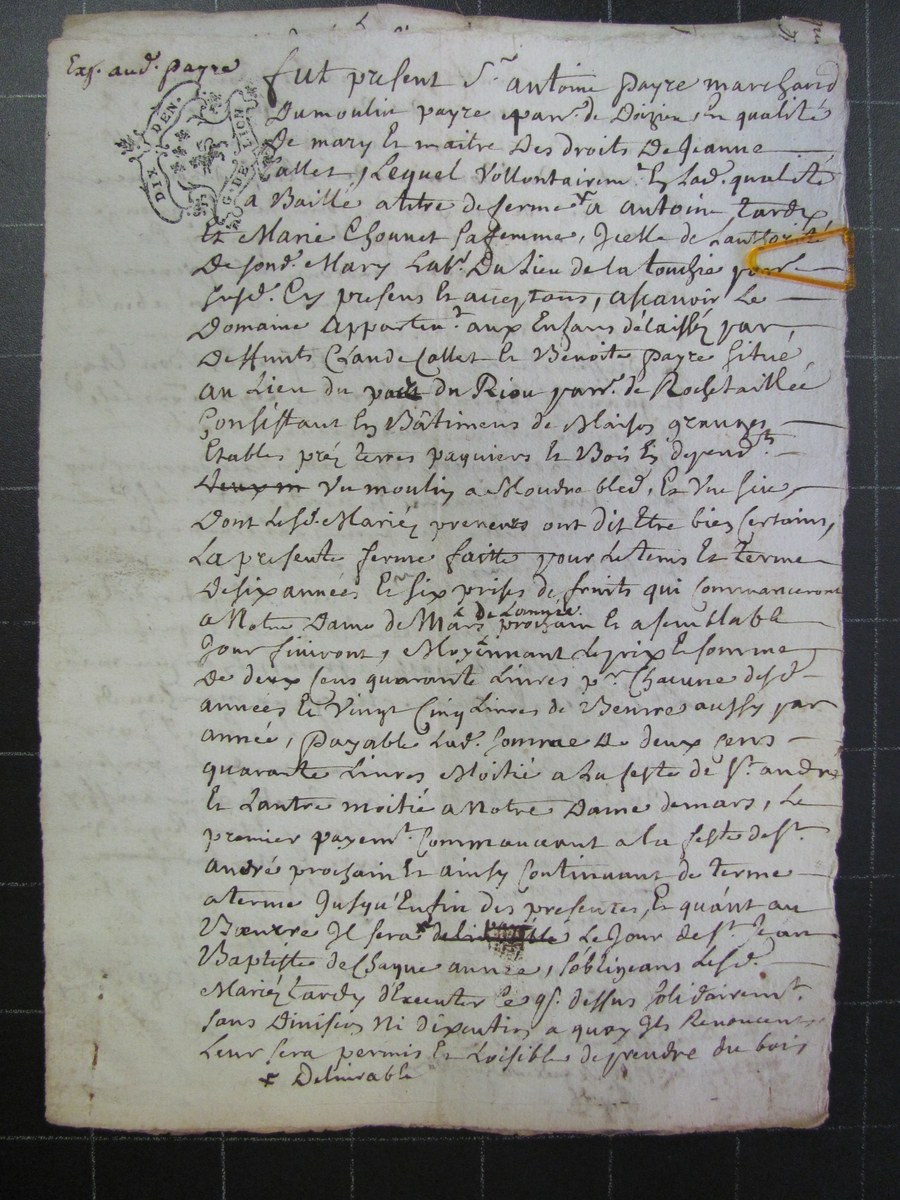 Exp. aud. payre
fut present Sr. antoine payre marchand
Du moulin payre parr. de Doizieu En qualité
De mary Et maitre Des droits De Jeanne
Collet, Lequel Vollontairemt. En Lad. qualité
a Baillé a titre de ferme a antoine tardy
Et Marie Chounet sa femme, Icelle de L'authorité
De sond. Mary Labr. Du Lieu de la touchie parr.
susd. Cy presens Et acceptans, ascavoir Le
Domaine appartent. aux Enfans délaissés par
Deffunts Claude Collet Et Benoite payre situé
au Lieu du du Riou parr. de Rochetaillée
Consistant En Bâtimens de Maison granges
Etables préz terres paquiers Et Bois En dependts.
Un moulin a Moudre bled, Et une sie
Dont Lesd. Mariéz preneurs ont dit Etre bien Certains,
La presente ferme faitte pour Le tems Et terme
De six années Et six prises de fruits qui Commanceront
a Notre Dame de Mars prochain Et a semblable
de L'année
Jour finiront, Moyennant Le prix Et somme
De deux Cens quarante Livres pr. Chacune desd.
années Et Vingt Cinq Livres de Beurre aussy par
année, payable Lad. somme De deux Cens
quarante Livres Moitié a La feste de St. andré
Et L'autre moitié a Notre Dame de mars, Le
premier payemt. Commancant a la feste de St.
andré prochain Et ainsy Continuant de terme
a terme Jusqu'Enfin Des presentes, Et quánt au
Beurre Il sera Le Jour de St. Jean
Baptiste de Chaque année, s'obligeans Lesd.
Mariéz tardy d'Executer Le qs. dessus solidairemt.
sans Division Ni d'ixcution a quoy Ils Renoncent
Leur sera permis Et Loisible de prendre du bois
Delivrable
DIX DEN.
G. DE LION